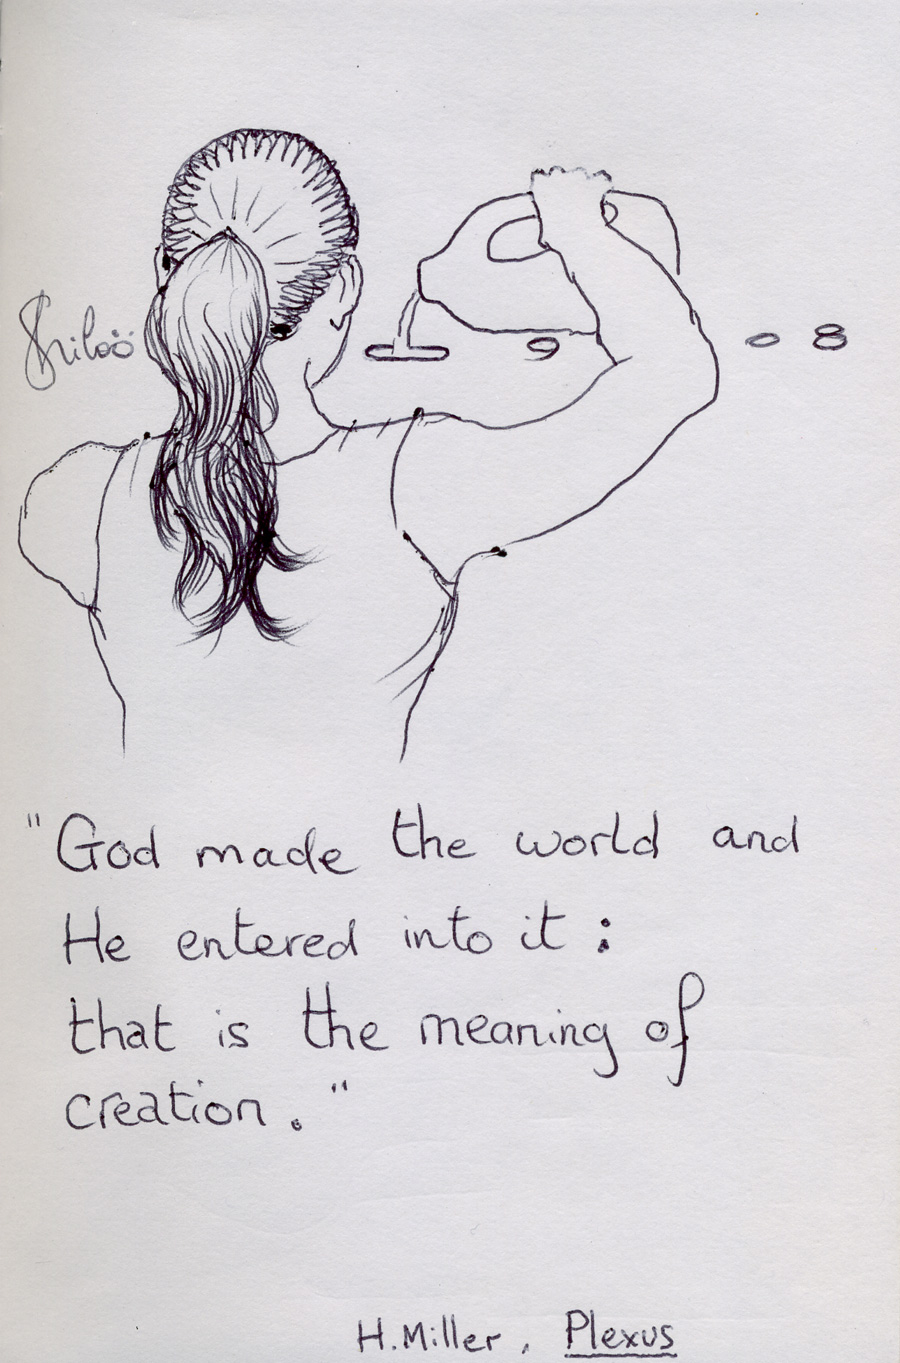 " God made the world and
He entered into it :
that is the meaning of
creation . "
H. Miller , Plexus